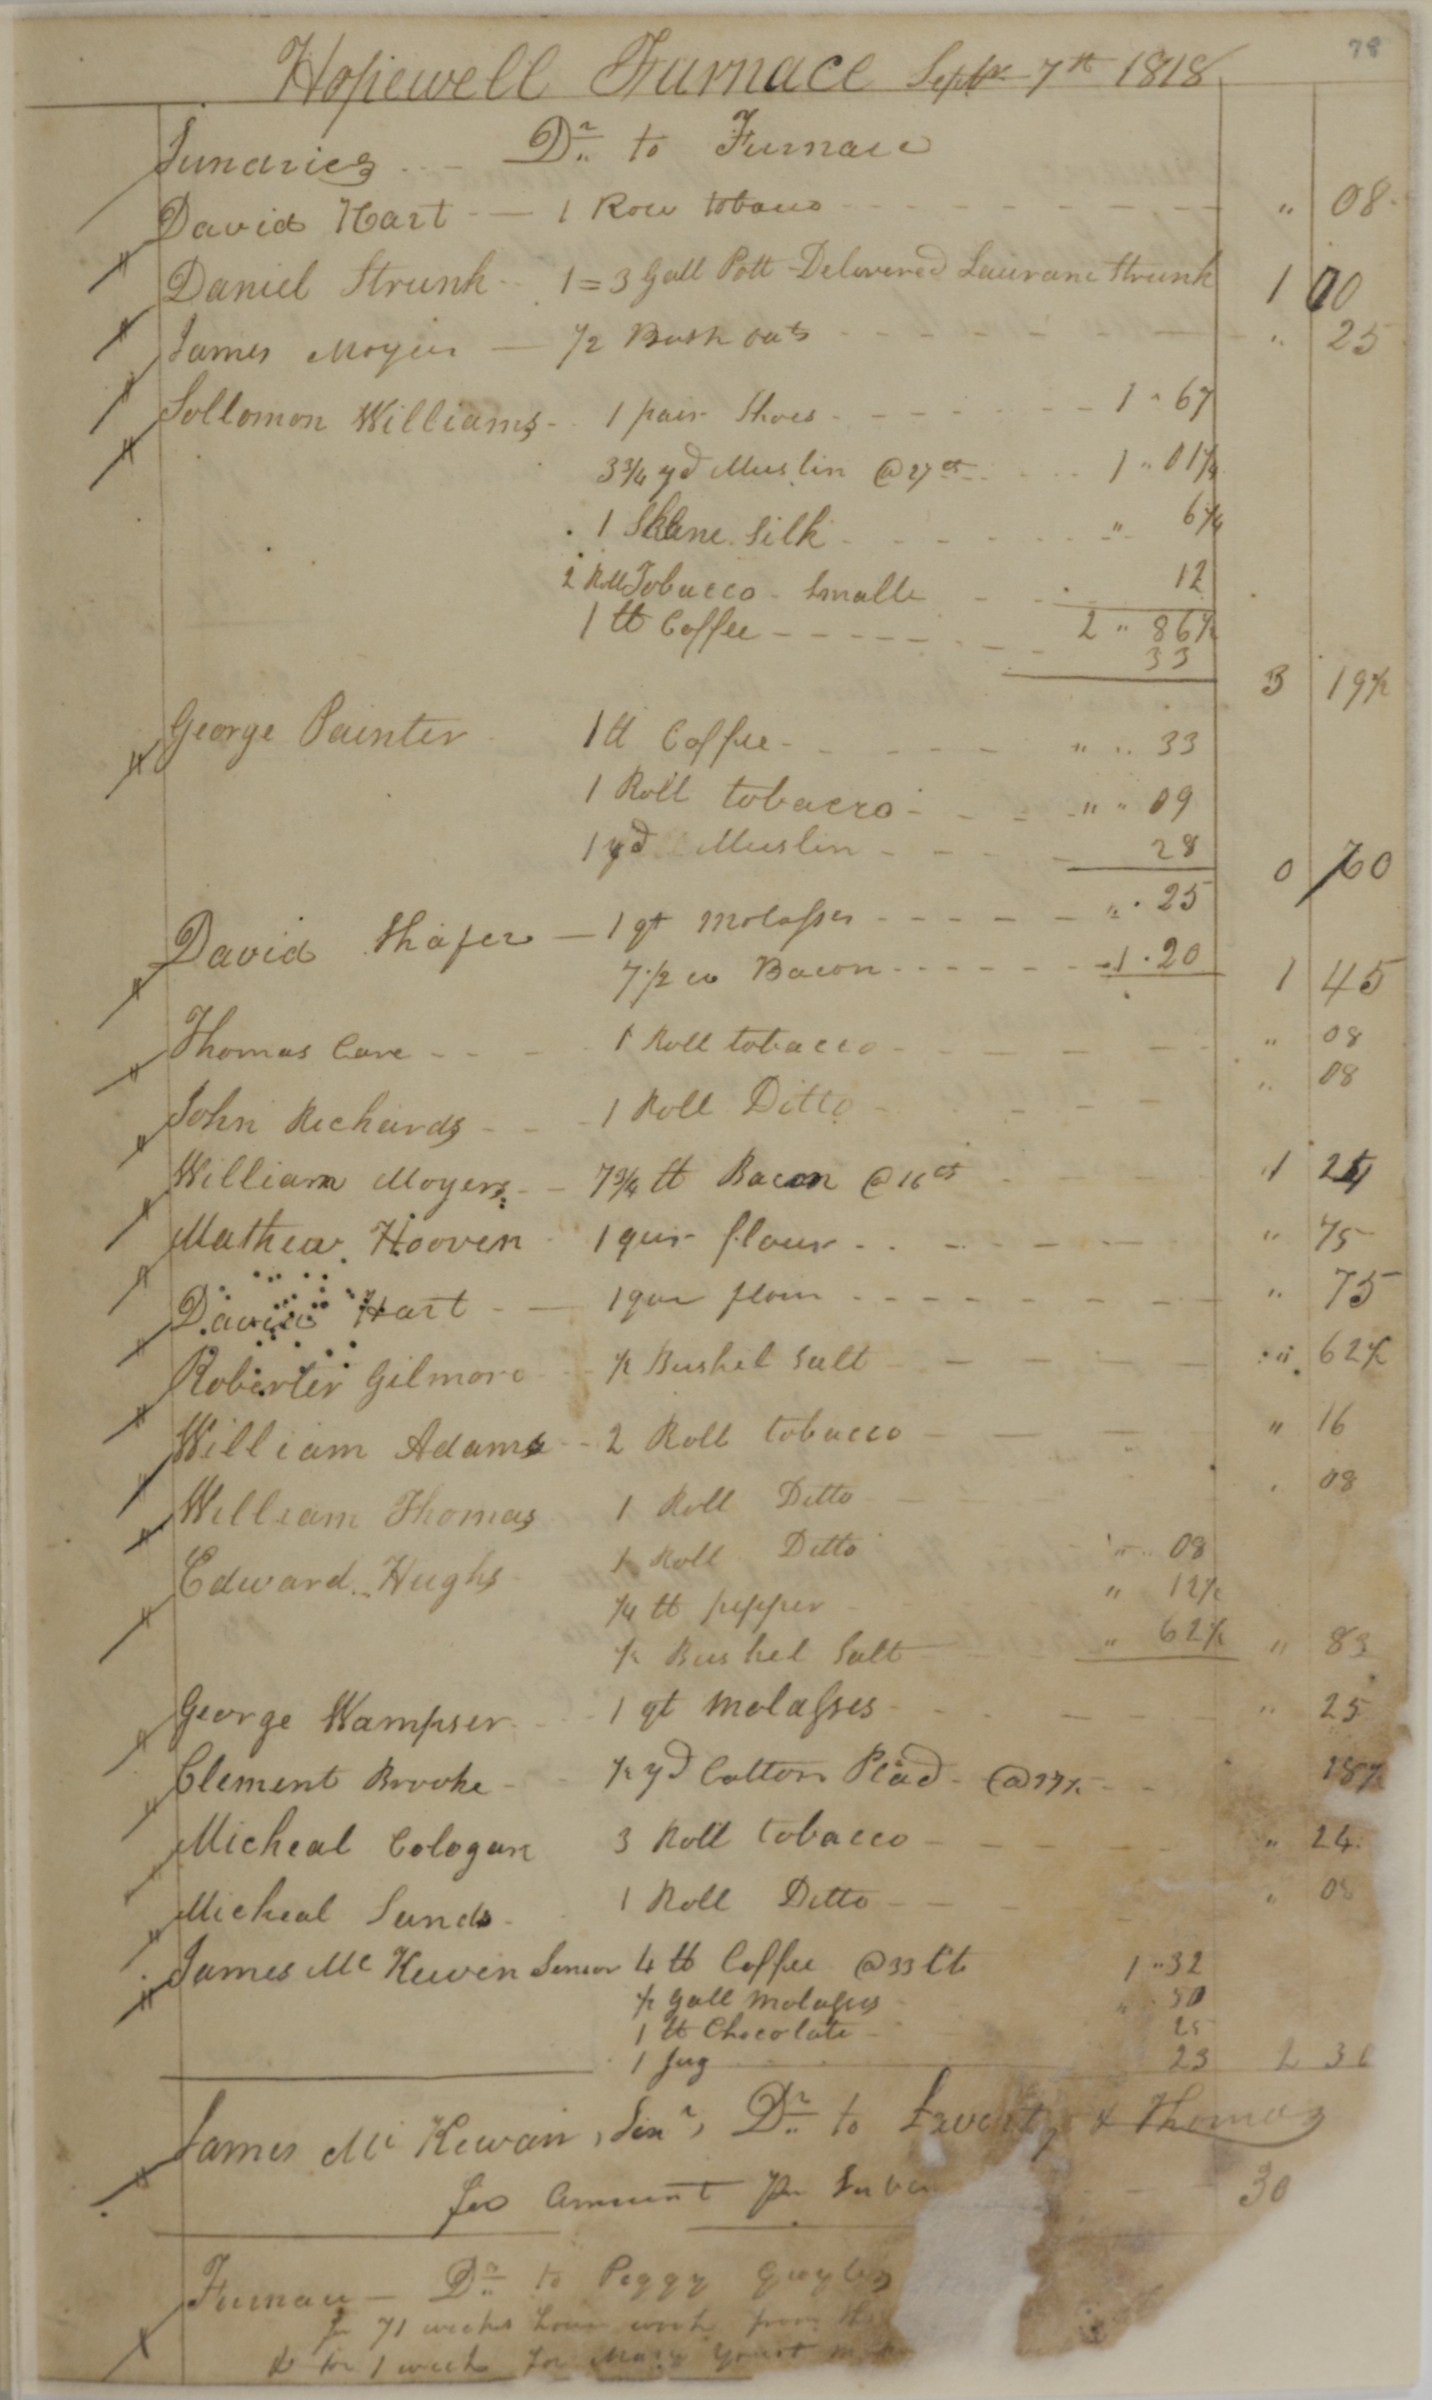 78
Hopewell Furnace Septbr 7th 1818
Sundries -- Dr to Furnace
David Hart -- 1 Row tobaco " 08
Daniel Strunk 1 = 3 Gall Pott Delivered Laurance Strunk 1 00
James Moyers -- 1/2 Bush oats " 25
Sollomon Williams 1 pair Shoes 1 " 67
3 3/4 yd Muslin @ 27 cts 1 " 01 1/4
1 Skene Silk " 6 1/4
2 Roll Tobacco Smalle 12
1 lt Coffee 2 " 86 1/2
33
3 19 1/2
George Painter 1 lt Coffee " " 33
1 Roll tobacco " " 09
1 yd Muslin 28
0 70
David Shafer -- 1 qt Molasses " 25
7 1/2 lb Bacon 1 . 20 1 45
Thomas Care 1 Roll tobacco " 08
John Richards 1 Roll Ditto " 08
William Moyers 7 3/4 lt Bacon @ 16 cts 1 24
Mathew Hooven 1 qur flour " 75
David Hart 1 qur flour " 75
Robert Gilmore 1/2 Bushel Salt " 62 1/2
William Adams 2 Roll tobacco " 16
William Thomas 1 Roll Ditto 08
Edward Hughs 1 Roll Ditto " 08
1/4 lt pepper " 12 1/2
1/2 Bushel Salt " 62 1/2 " 83
George Wampser 1 qt Molasses " 25
Clement Brooke 1/2 yd Cotton Plad @ 37 1/2 18 3/4
Micheal Cologan 3 Roll tobacco " 24
Micheal Sands 1 Roll Ditto " 08
James Mc Kewen Senior 4 lt Coffee @ 33 Cts 1 " 32
1/2 Gall Molasses " 50
1 lt Chocolate 25
1 Jug 23 2 30
James Mc Kewan, Senr, Dr to & Thomas
for Amount pr 30
Furnace -- Dr to Peggy
for 71 weeks work from
& for 1 week for Mary